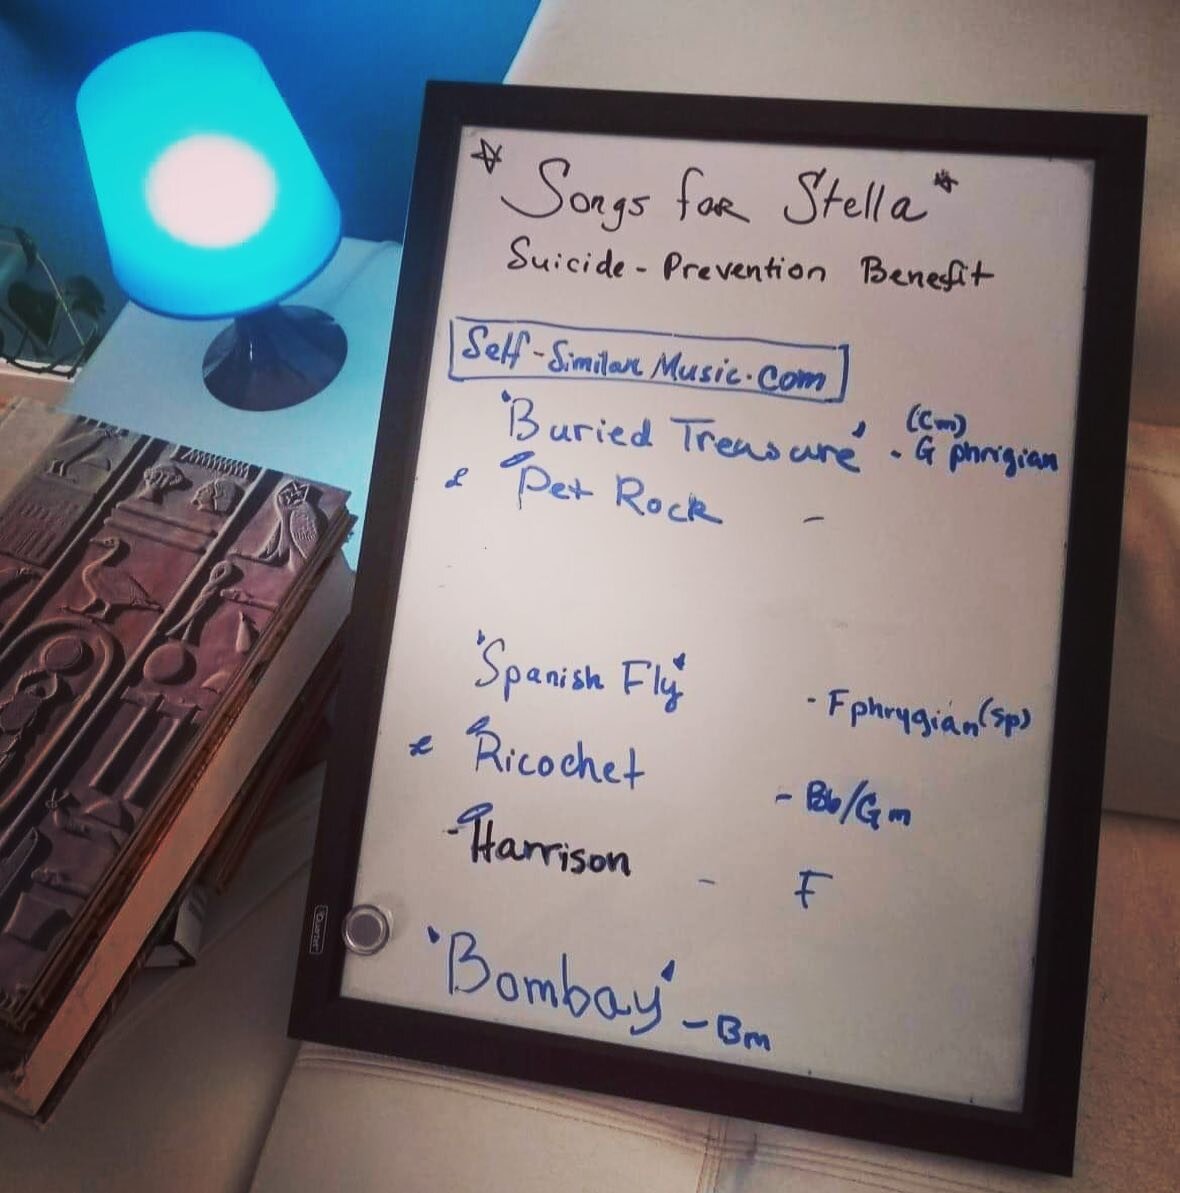 Songs for Stella
Suicide - Prevention Benefit
Self-Similar Music.com
'Buried Treasure' - (Cm) G phrigian
& Pet Rock -
'Spanish Fly' - F phrygian (Sp)
& Ricochet - Bb/Gm
- Harrison - F
'Bombay' - Bm
Quartet